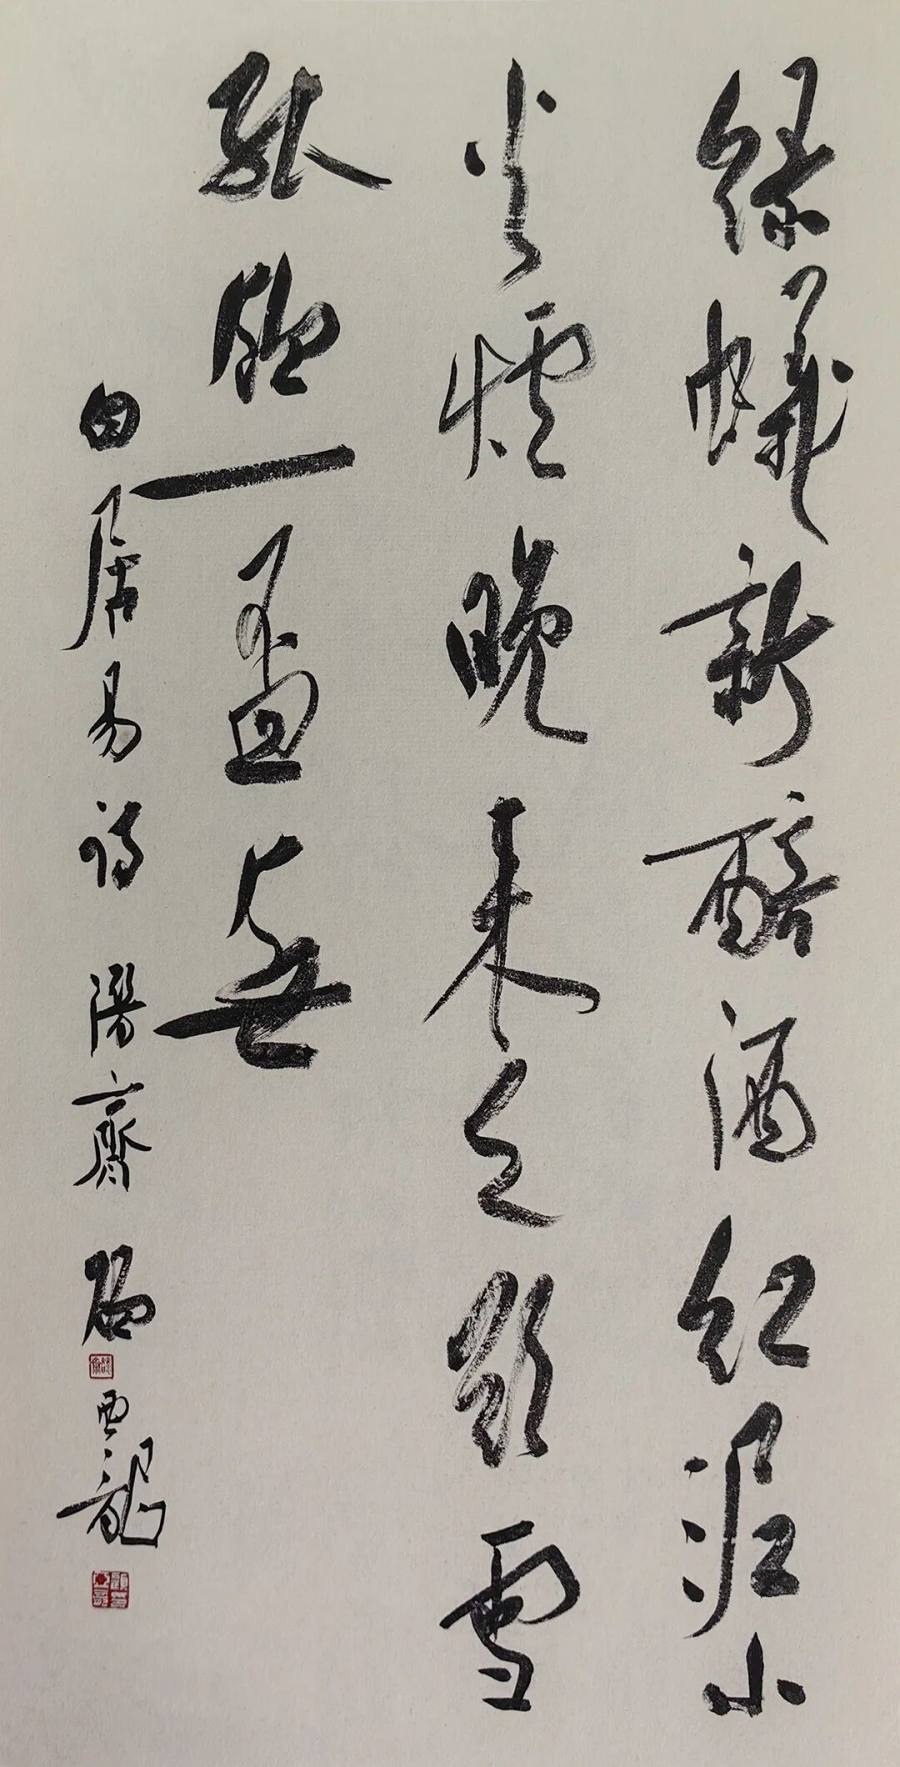 綠蟻新醅酒紅泥小
火爐晚來天欲雪
能飲一盃無
白居易詩 陽齋 西龍